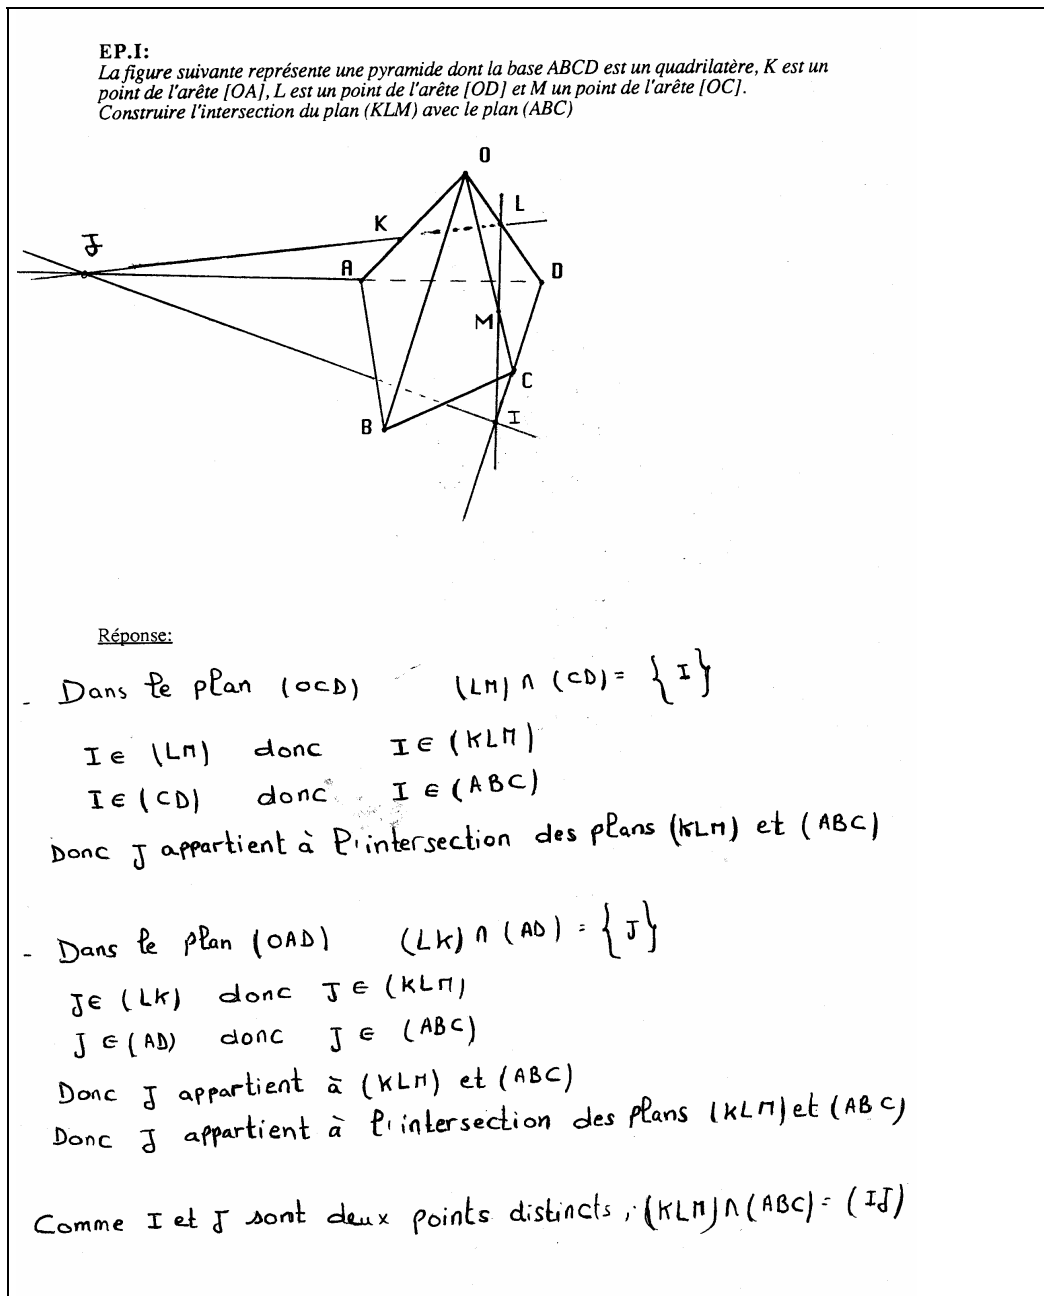 EP.I:
La figure suivante représente une pyramide dont la base ABCD est un quadrilatère, K est un
point de l'arête [OA], L est un point de l'arête [OD] et M un point de l'arête [OC].
Construire l'intersection du plan (KLM) avec le plan (ABC)
O
L
K
J
A
D
M
C
I
B
Réponse:
- Dans le plan (OCD) (LM) ∩ (CD) = {I}
I ∈ (LM) donc I ∈ (KLM)
I ∈ (CD) donc I ∈ (ABC)
Donc J appartient à l'intersection des plans (KLM) et (ABC)
- Dans le plan (OAD) (LK) ∩ (AD) = {J}
J ∈ (LK) donc J ∈ (KLM)
J ∈ (AD) donc J ∈ (ABC)
Donc J appartient à (KLM) et (ABC)
Donc J appartient à l'intersection des plans (KLM) et (ABC)
Comme I et J sont deux points distincts, (KLM) ∩ (ABC) = (IJ)